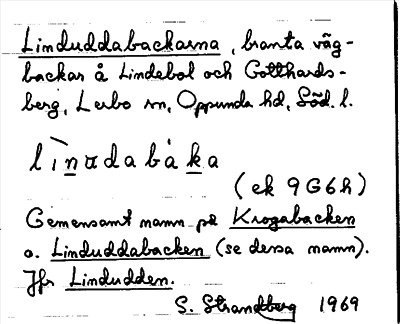 Linduddabackarna, branta väg-
backar å Lindebol och Gotthards-
berg, Lerbo sn, Oppunda hd, Söd. l.
lìnudabáka
(ek 9G6h)
Gemensamt namn på Krogabacken
o. Linduddabacken (se dessa namn).
Jfr Lindudden.
S. Strandberg 1969